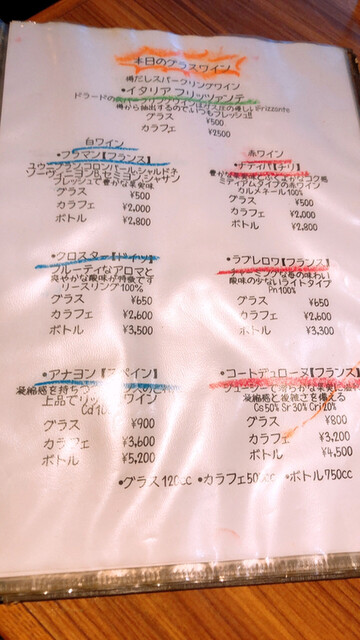 本日のグラスワイン
樽だしスパークリングワイン
•イタリア フリッツァンテ
樽から抽出するのでいつもフレッシュ!!
グラス ¥500
カラフェ ¥2500
白ワイン
•プラマン【フランス】
フレッシュで豊かな果実味
グラス ¥500
カラフェ ¥2.000
ボトル ¥2.800
•クロスター【ドイツ】
フルーティなアロマと
爽やかな酸味が特徴です
リースリング100%
グラス ¥650
カラフェ ¥2,600
ボトル ¥3,500
•アナヨン【スペイン】
凝縮感を持ちつつ
上品でリッチ ワイン
グラス ¥900
カラフェ ¥3,600
ボトル ¥5,200
赤ワイン
•ナティバ【チリ】
ミディアムタイプの赤ワイン
カルメネール100%
グラス ¥500
カラフェ ¥2.000
ボトル ¥2.800
•ラブレロワ【フランス】
酸味の少ないライトタイプ
Pn100%
グラス ¥650
カラフェ ¥2,600
ボトル ¥3,300
•コートデュローヌ【フランス】
凝縮感と複雑さを備える
Cs50% Sr30% Cri20%
グラス ¥800
カラフェ ¥3,200
ボトル ¥4,500
•グラス120cc •カラフェ500cc •ボトル750cc